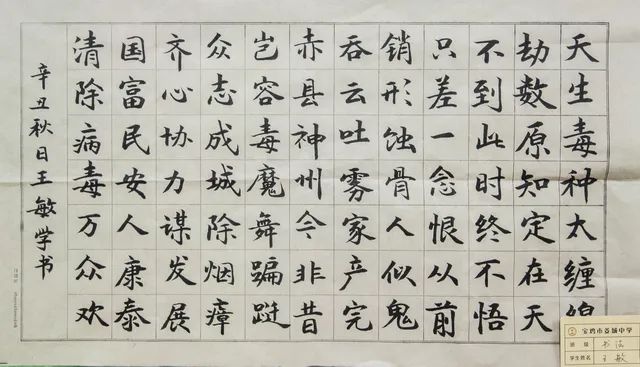 天生毒种太缠绵
劫数原知定在天
不到此时终不悟
只差一念恨从前
销形蚀骨人似鬼
吞云吐雾家产完
赤县神州今非昔
岂容毒魔舞蹁跹
众志成城除烟瘴
齐心协力谋发展
国富民安人康泰
清除病毒万众欢
辛丑秋日王敏学书
宝鸡市茵城中学
班级 书法
学生姓名 王敏